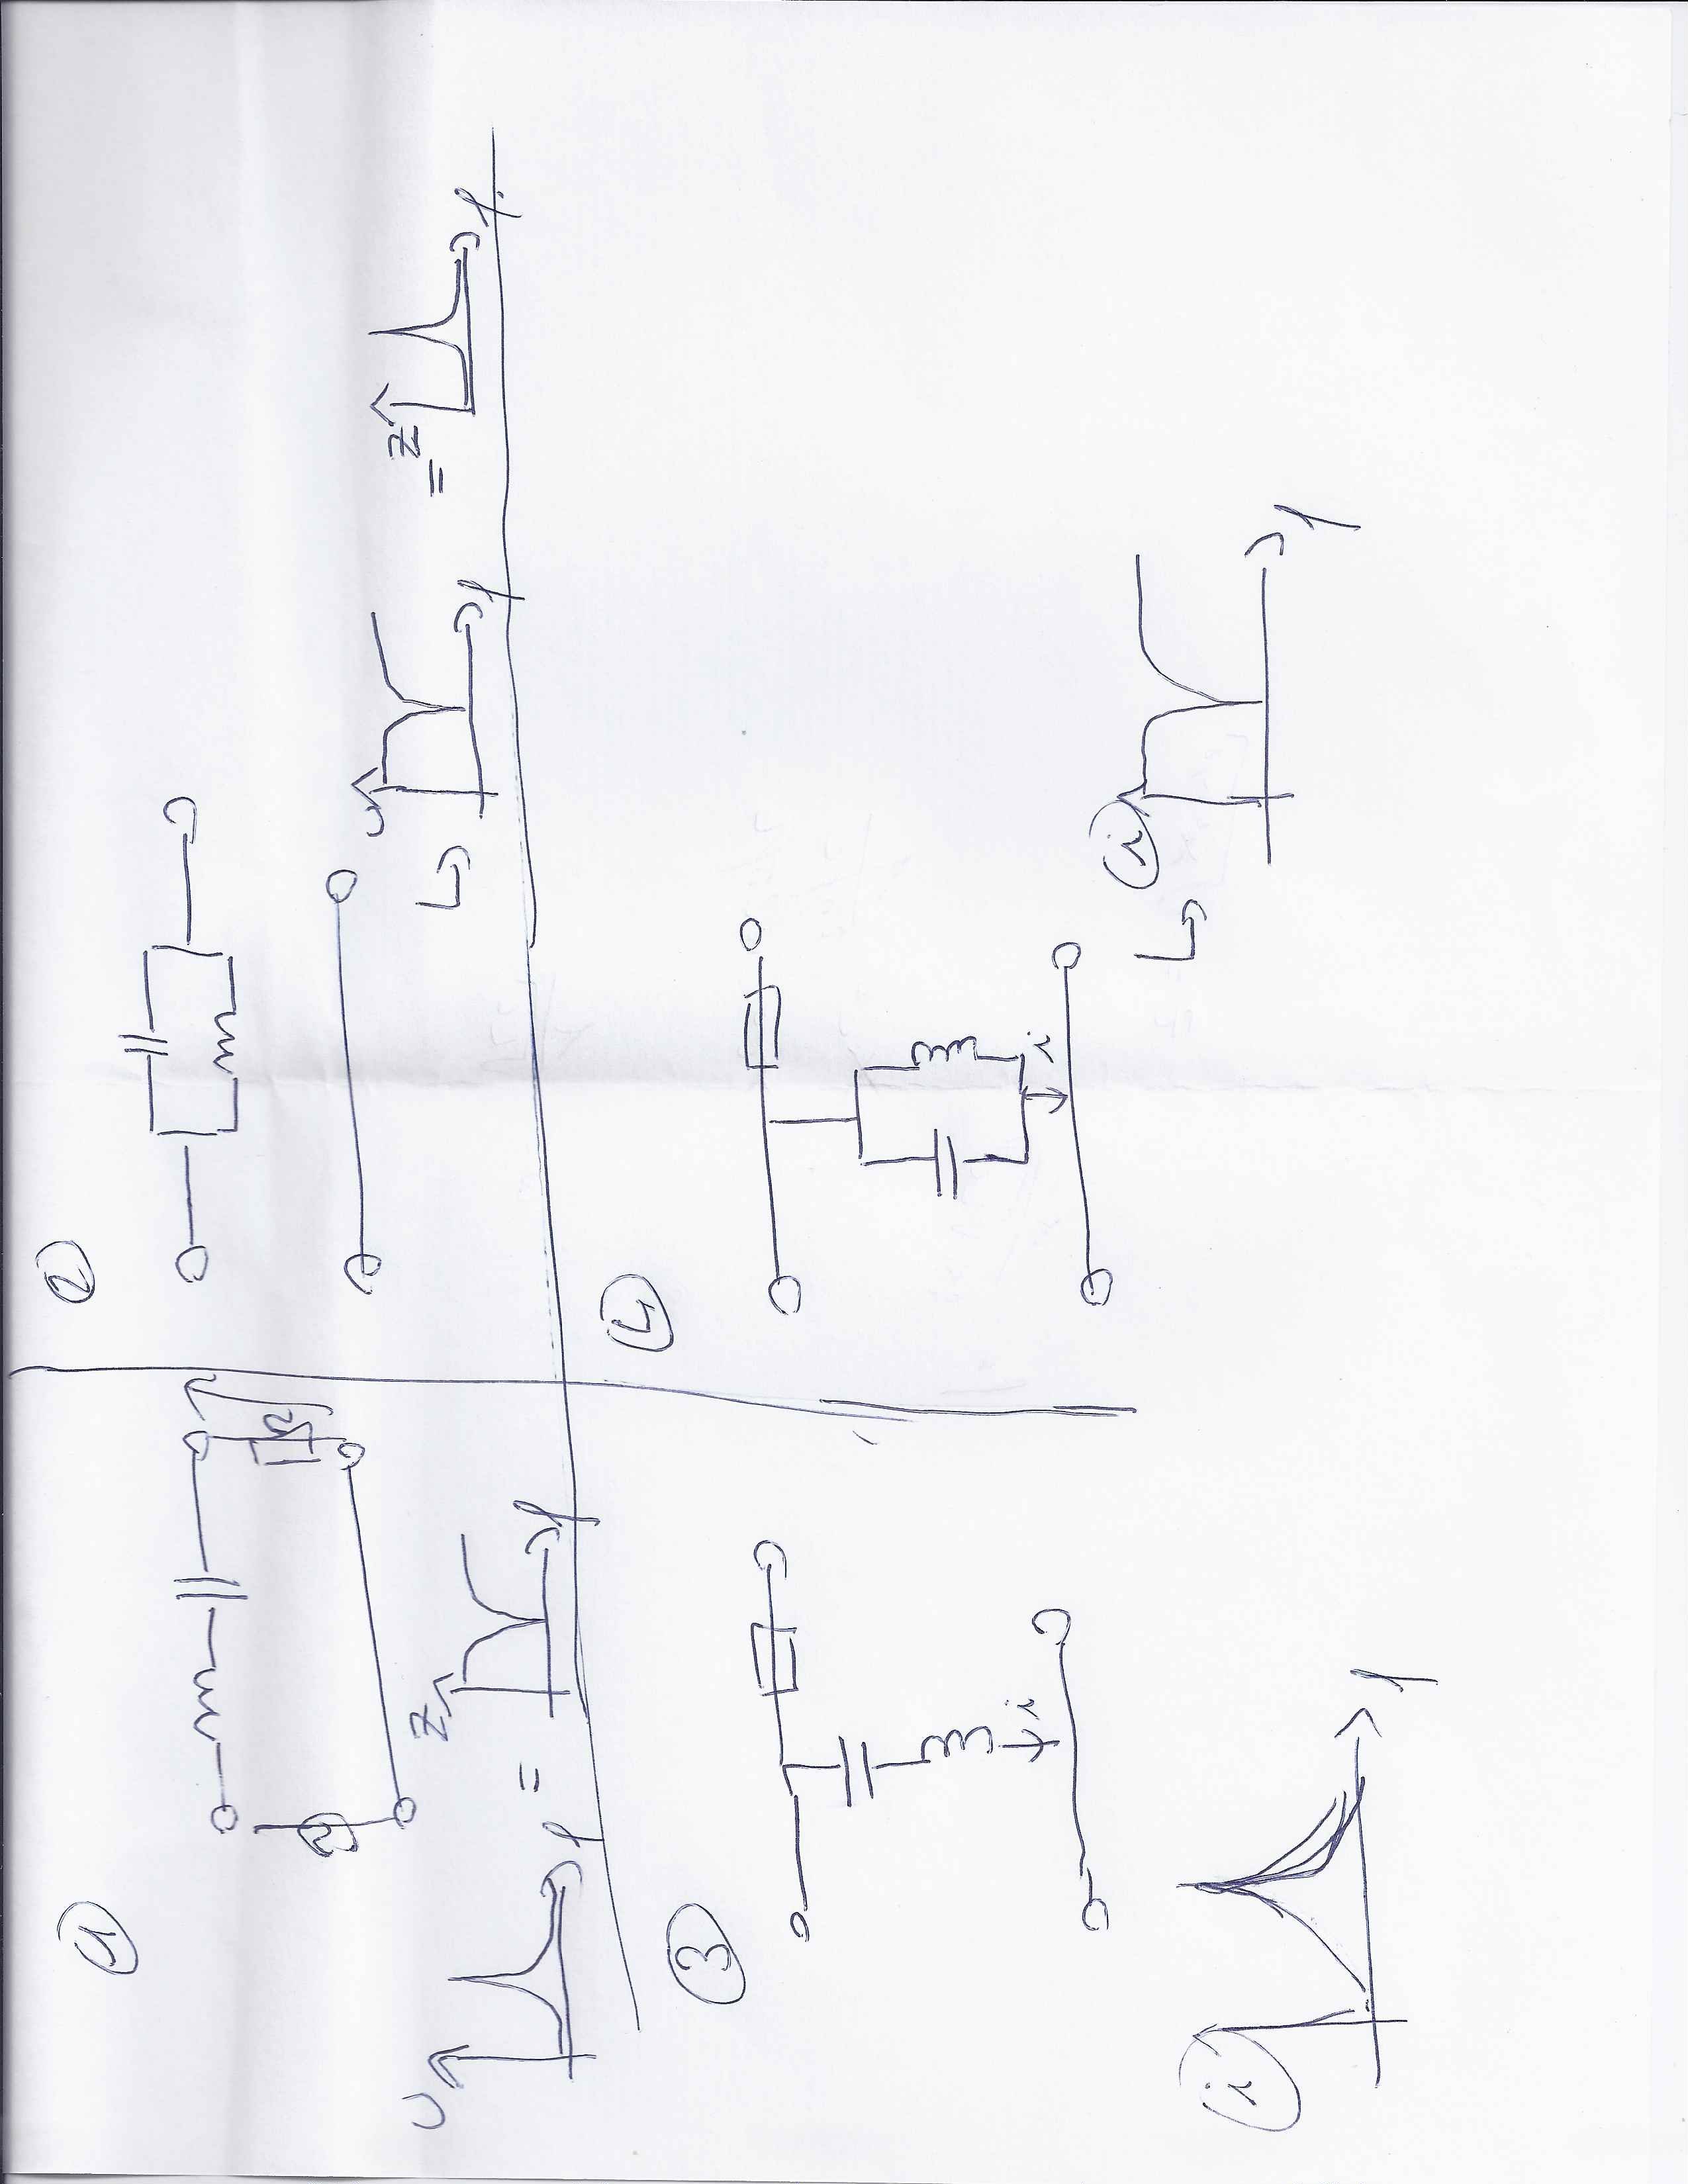 1
R
U
f
=
Z
f
2
U
f
=
Z
f
3
i
i
f
4
i
i
f